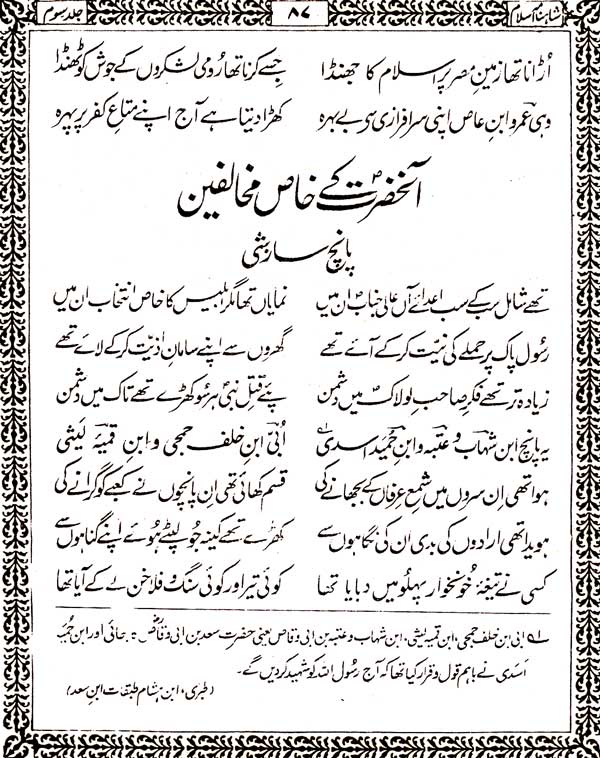 شاہنامہ اسلام ۸۷ جلد سوم
اُڑانا تھا زمینِ مصر پر اسلام کا جھنڈا جسے کرنا تھا رُومی لشکروں کے جوش کو ٹھنڈا
وہی عمرو ابنِ عاص اپنی سرافرازی سی بے بہرہ کھڑا دیتا ہے آج اپنے متاعِ کفر پر پہرہ
آنحضرتؐ کے خاص مخالفین
پانچ سازشی
تھے شامل سب کے سب اعدائے آں عالی جنابؐ ان میں نمایاں تھا مگر ابلیس کا خاص انتخاب ان میں
رسُولِ پاک پر حملے کی نیّت کر کے آئے تھے گھروں سے اپنے سامانِ اذیّت کر کے لائے تھے
زیادہ تر تھے فکرِ صاحبِ لولاکؐ میں دشمن پئے قتلِ نبیؐ ہر سُو کھڑے تھے تاک میں دشمن
یہ پانچ ابن شہاب و عتبہ و ابنِ حُمید اسدی اُبیّ ابنِ خلف جمحی و ابنِ قمیہ لیثی
ہوا تھی اِن سروں میں شمعِ عرفاں کے بجھانے کی قسم کھائی تھی اِن پانچوں نے کعبے کو گرانے کی
ہویدا تھی ارادوں کی بدی اُن کی نگاہوں سے کھڑے تھے کینہ جُو لپٹے ہوئے اپنے گناہوں سے
کسی نے تیغۂ خُونخوار پہلُو میں دبایا تھا کوئی تیر اور کوئی سنگ و فلاخن لے کے آیا تھا
لہ ابی بن خلف جمحی، ابن قمیہ لیثی، ابن شہاب و عتبہ بن ابی وقاص یعنی حضرت سعد بن ابی وقاصؓ کا بھائی اور ابن حُمید
اَسدی نے باہم قول و قرار کیا تھا کہ آج رسُول اللہ کو شہید کر دیں گے۔
(طبری، ابن ہشام طبقات ابن سعد)